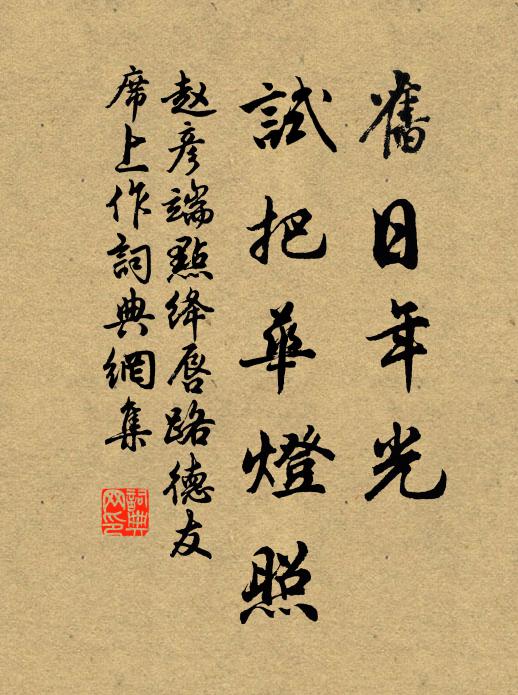 舊日年光
試把華燈照
赵彦端點絳唇路德友
席上作詞典網集
詞典網印